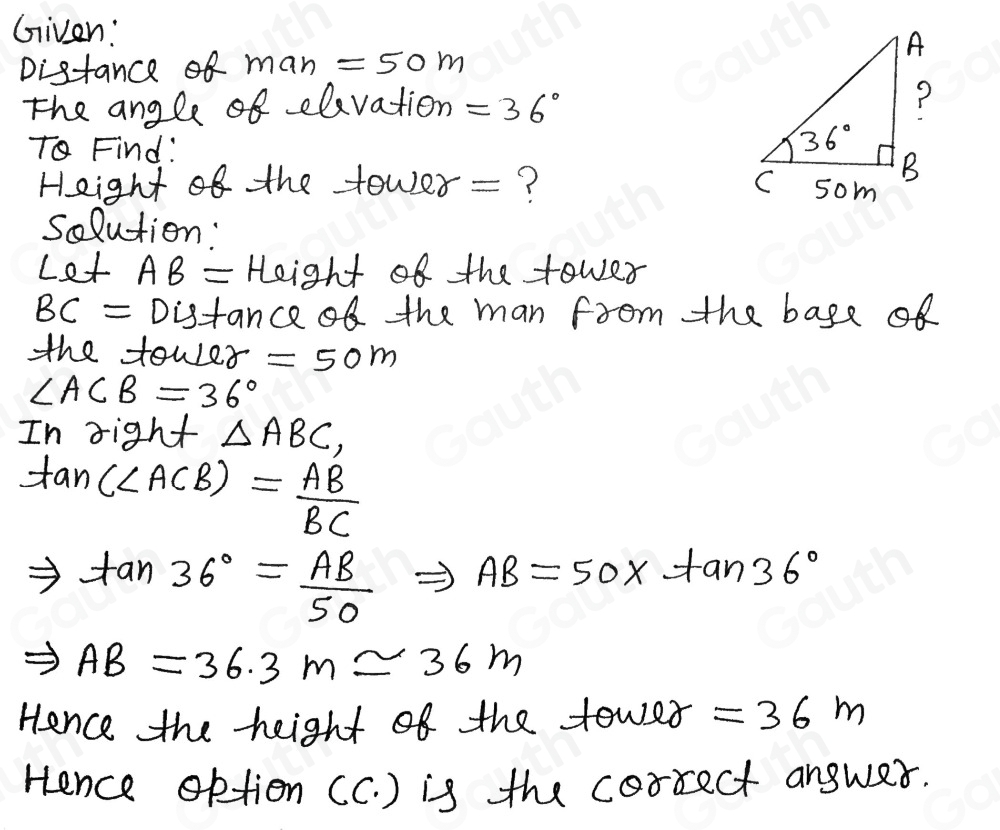 Given:
Distance of man = 50 m
The angle of elevation = 36°
To Find:
Height of the tower = ?
Solution:
Let AB = Height of the tower
BC = Distance of the man from the base of
the tower = 50m
∠ACB = 36°
In right △ABC,
tan(∠ACB) = AB/BC
⇒ tan 36° = AB/50 ⇒ AB = 50 × tan 36°
⇒ AB = 36.3 m ≃ 36 m
Hence the height of the tower = 36 m
Hence option (C.) is the correct answer.
A
?
36°
C
B
50m
Gauth